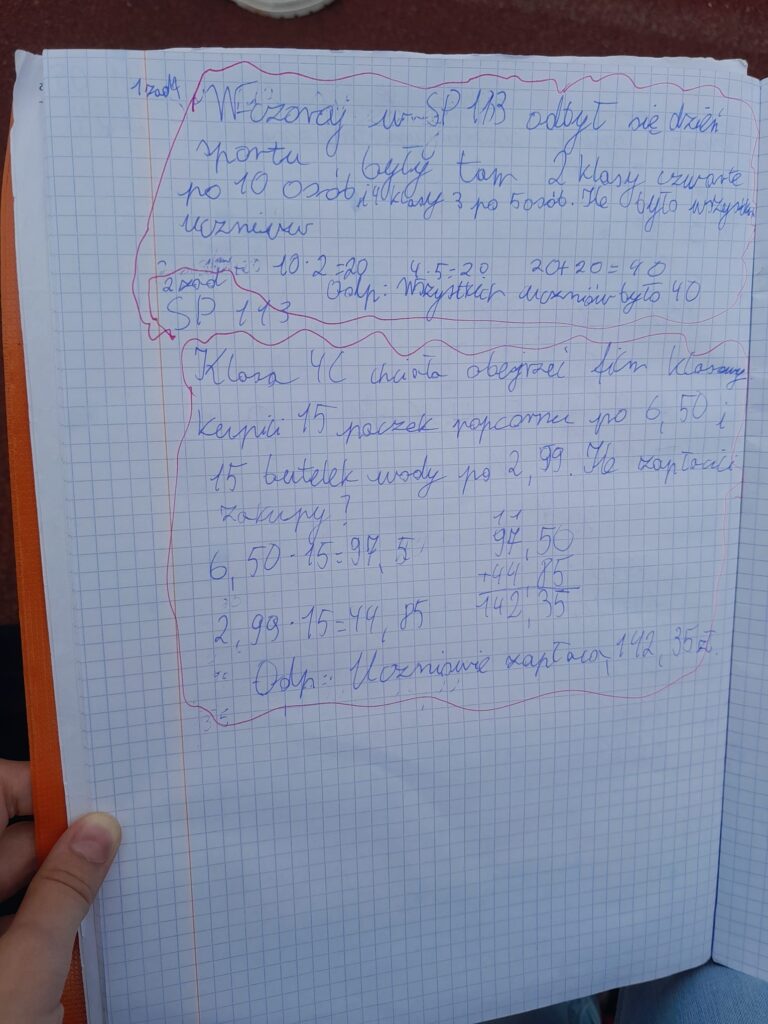 1 zad
Wczoraj w SP 113 odbył się dzień
sportu były tam 2 klasy czwarte
po 10 osób, i 4 klasy 3 po 5 osób. Ile było
uczniów
10 · 2 = 20 4 · 5 = 20 20 + 20 = 40
2 zad Odp: Wszystkich uczniów było 40
SP 113
Klasa 4C chciała obejrzeć film klasowy
kupili 15 paczek popcornu po 6,50 i
15 butelek wody po 2,99. Ile zapłacili
zakupy?
6,50 · 15 = 97,5
1 1
97,50
+44,85
142,35
2,99 · 15 = 44,85
Odp: Uczniowie zapłacą 142,35 zł.